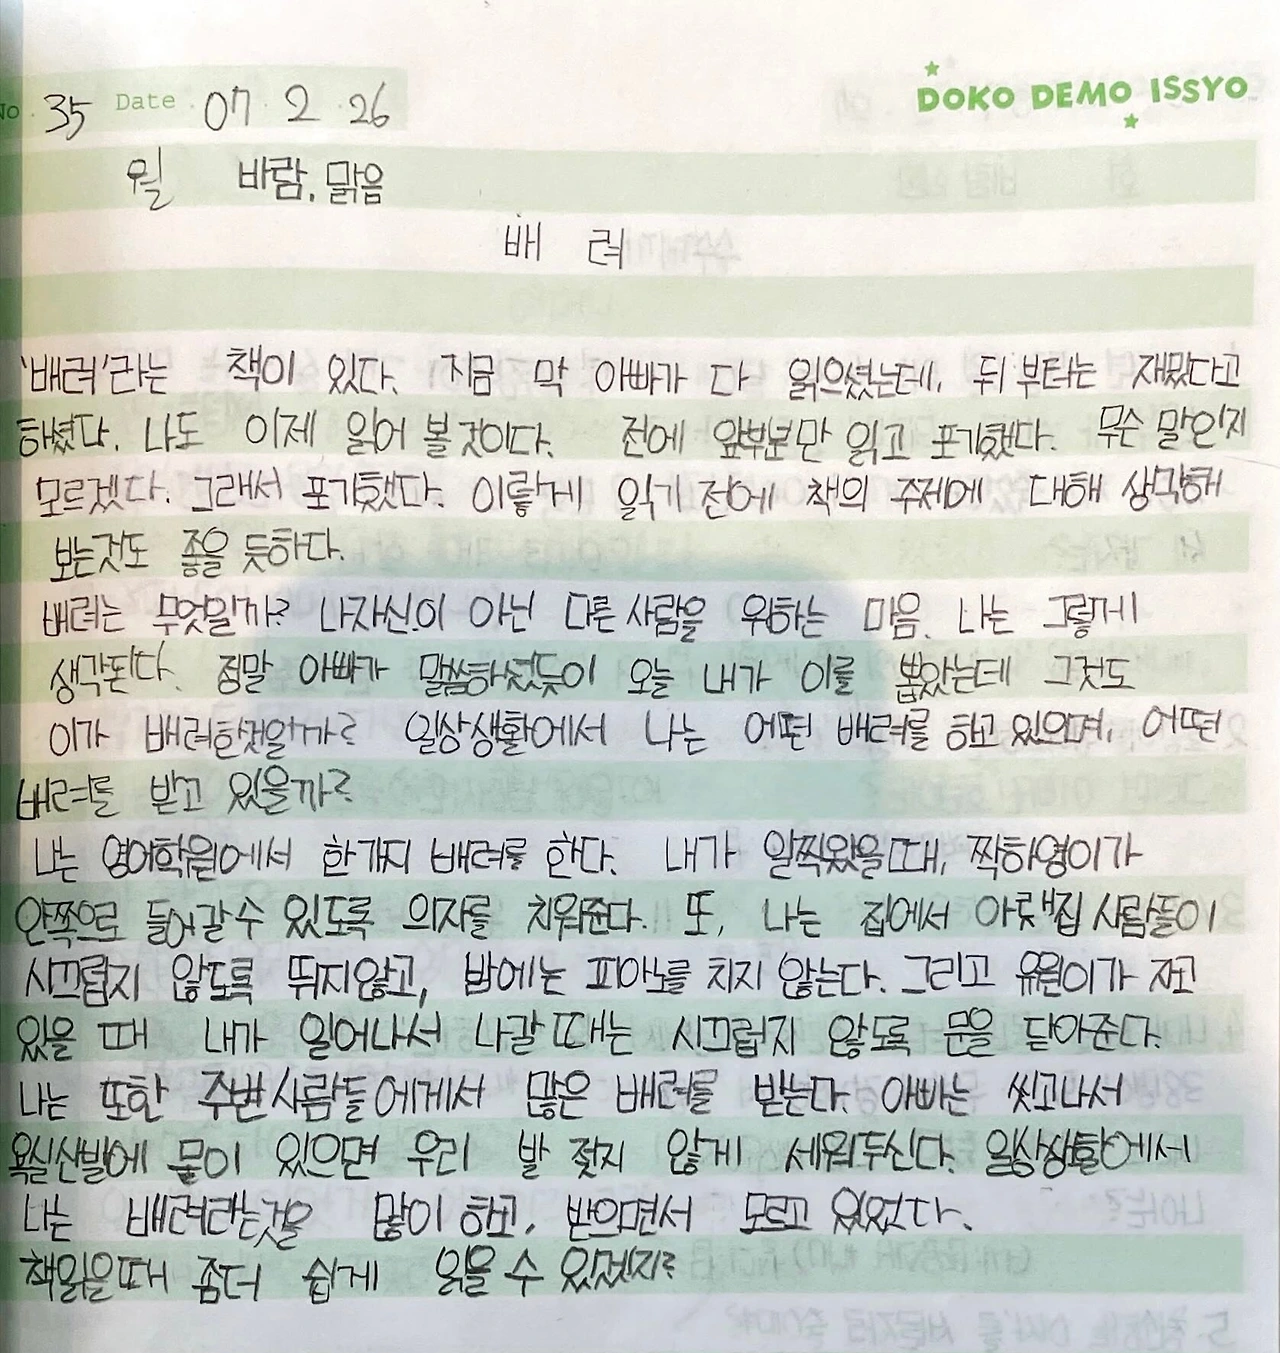 No. 35 Date . 07. 2. 26
DOKO DEMO ISSYO
월 바람, 맑음
배 려
'배려'라는 책이 있다. 지금 막 아빠가 다 읽으셨는데, 뒤부터는 재밌다고
하셨다. 나도 이제 읽어 볼것이다. 전에 앞부분만 읽고 포기했다. 무슨 말인지
모르겠다. 그래서 포기했다. 이렇게 읽기 전에 책의 주제에 대해 생각해
보는것도 좋을 듯하다.
배려는 무엇일까? 나자신이 아닌 다른 사람을 위하는 마음. 나는 그렇게
생각된다. 정말 아빠가 말씀하셨듯이 오늘 내가 이를 뽑았는데 그것도
이가 배려한것일까? 일상생활에서 나는 어떤 배려를 하고있으며, 어떤
배려를 받고 있을까?
나는 영어학원에서 한가지 배려를 한다. 내가 일찍왔을때, 짝하영이가
안쪽으로 들어갈수 있도록 의자를 치워준다. 또, 나는 집에서 아랫집 사람들이
시끄럽지 않도록 뛰지않고, 밤에는 피아노를 치지 않는다. 그리고 유원이가 자고
있을 때 내가 일어나서 나갈때는 시끄럽지 않도록 문을 닫아준다.
나는 또한 주변사람들에게서 많은 배려를 받는다. 아빠는 씻고나서
욕실신발에 물이 있으면 우리 발 젖지 않게 세워두신다. 일상생활에서
나는 배려라는것을 많이 하고, 받으면서 모르고 있었다.
책읽을때 좀더 쉽게 읽을 수 있겠지?